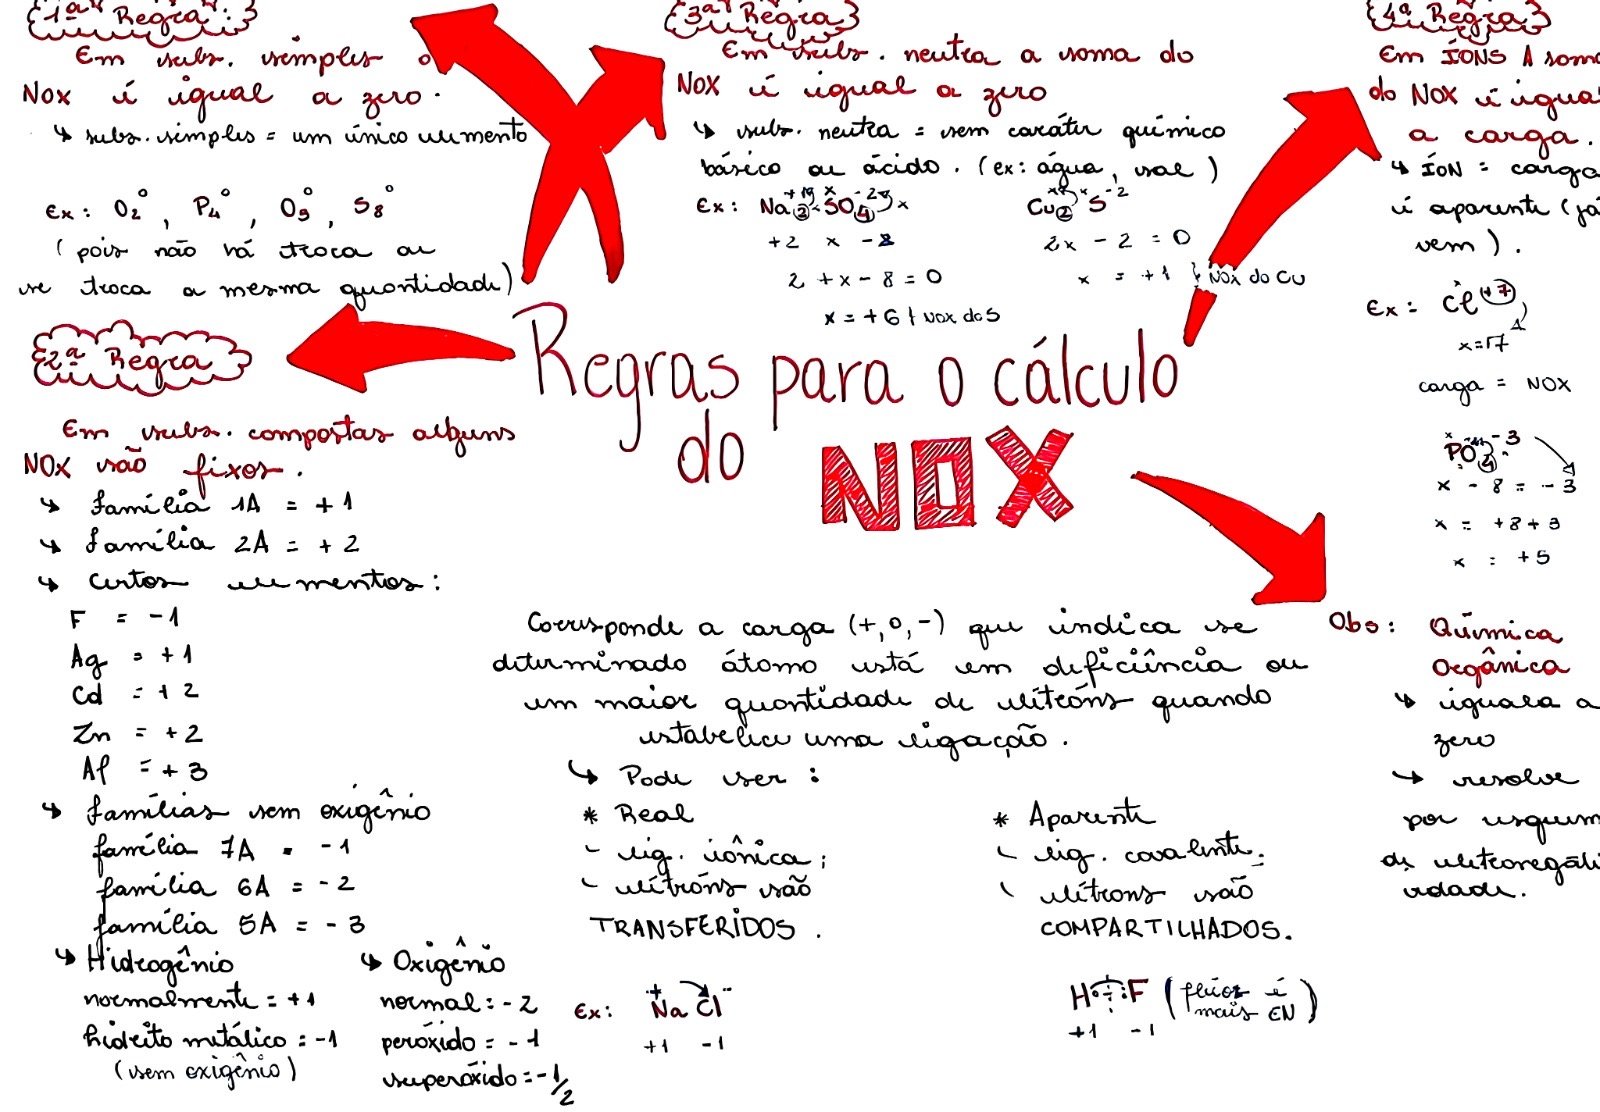 1ª Regra:
Em subs. simples o
NOX é igual a zero.
↳ subs. simples = um único elemento
Ex: O₂⁰, P₄⁰, O₃⁰, S₈⁰
(pois não há troca ou
se troca a mesma quantidade)
2ª Regra
Em subs. compostas alguns
NOX são fixos.
↳ família 1A = +1
↳ família 2A = +2
↳ certos elementos:
F = -1
Ag = +1
Cd = +2
Zn = +2
Al = +3
↳ famílias sem oxigênio
família 7A = -1
família 6A = -2
família 5A = -3
↳ Hidrogênio
normalmente = +1
hidreto metálico = -1
(sem oxigênio)
↳ Oxigênio
normal: -2
peróxido = -1
superóxido = -1/2
3ª Regra
Em subs. neutra a soma do
NOX é igual a zero
↳ subs. neutra = sem caráter químico
básico ou ácido. (ex: água, sal)
Ex: Na₂SO₄
+2 x -8
2 + x - 8 = 0
x = +6 } NOX do S
Cu₂S⁻²
2x - 2 = 0
x = +1 } NOX do Cu
4ª Regra
Em ÍONS A soma
do NOX é igual
a carga.
↳ ÍON = carga
é aparente (já
vem).
Ex: Cl +7
x=+7
carga = NOX
PO₄⁻³
x - 8 = -3
x = +8+3
x = +5
Regras para o cálculo
do NOX
Corresponde a carga (+,0,-) que indica se
determinado átomo está em deficiência ou
em maior quantidade de elétrons quando
estabelece uma ligação.
↳ Pode ser:
* Real
- lig. iônica;
- elétrons são
TRANSFERIDOS.
Ex: Na Cl
+1 -1
* Aparente
- lig. covalente;
- elétrons são
COMPARTILHADOS.
H F (flúor é
mais EN)
+1 -1
Obs: Química
Orgânica
↳ iguala a
zero
↳ resolve
por esquem
de eletronegati
vidade.